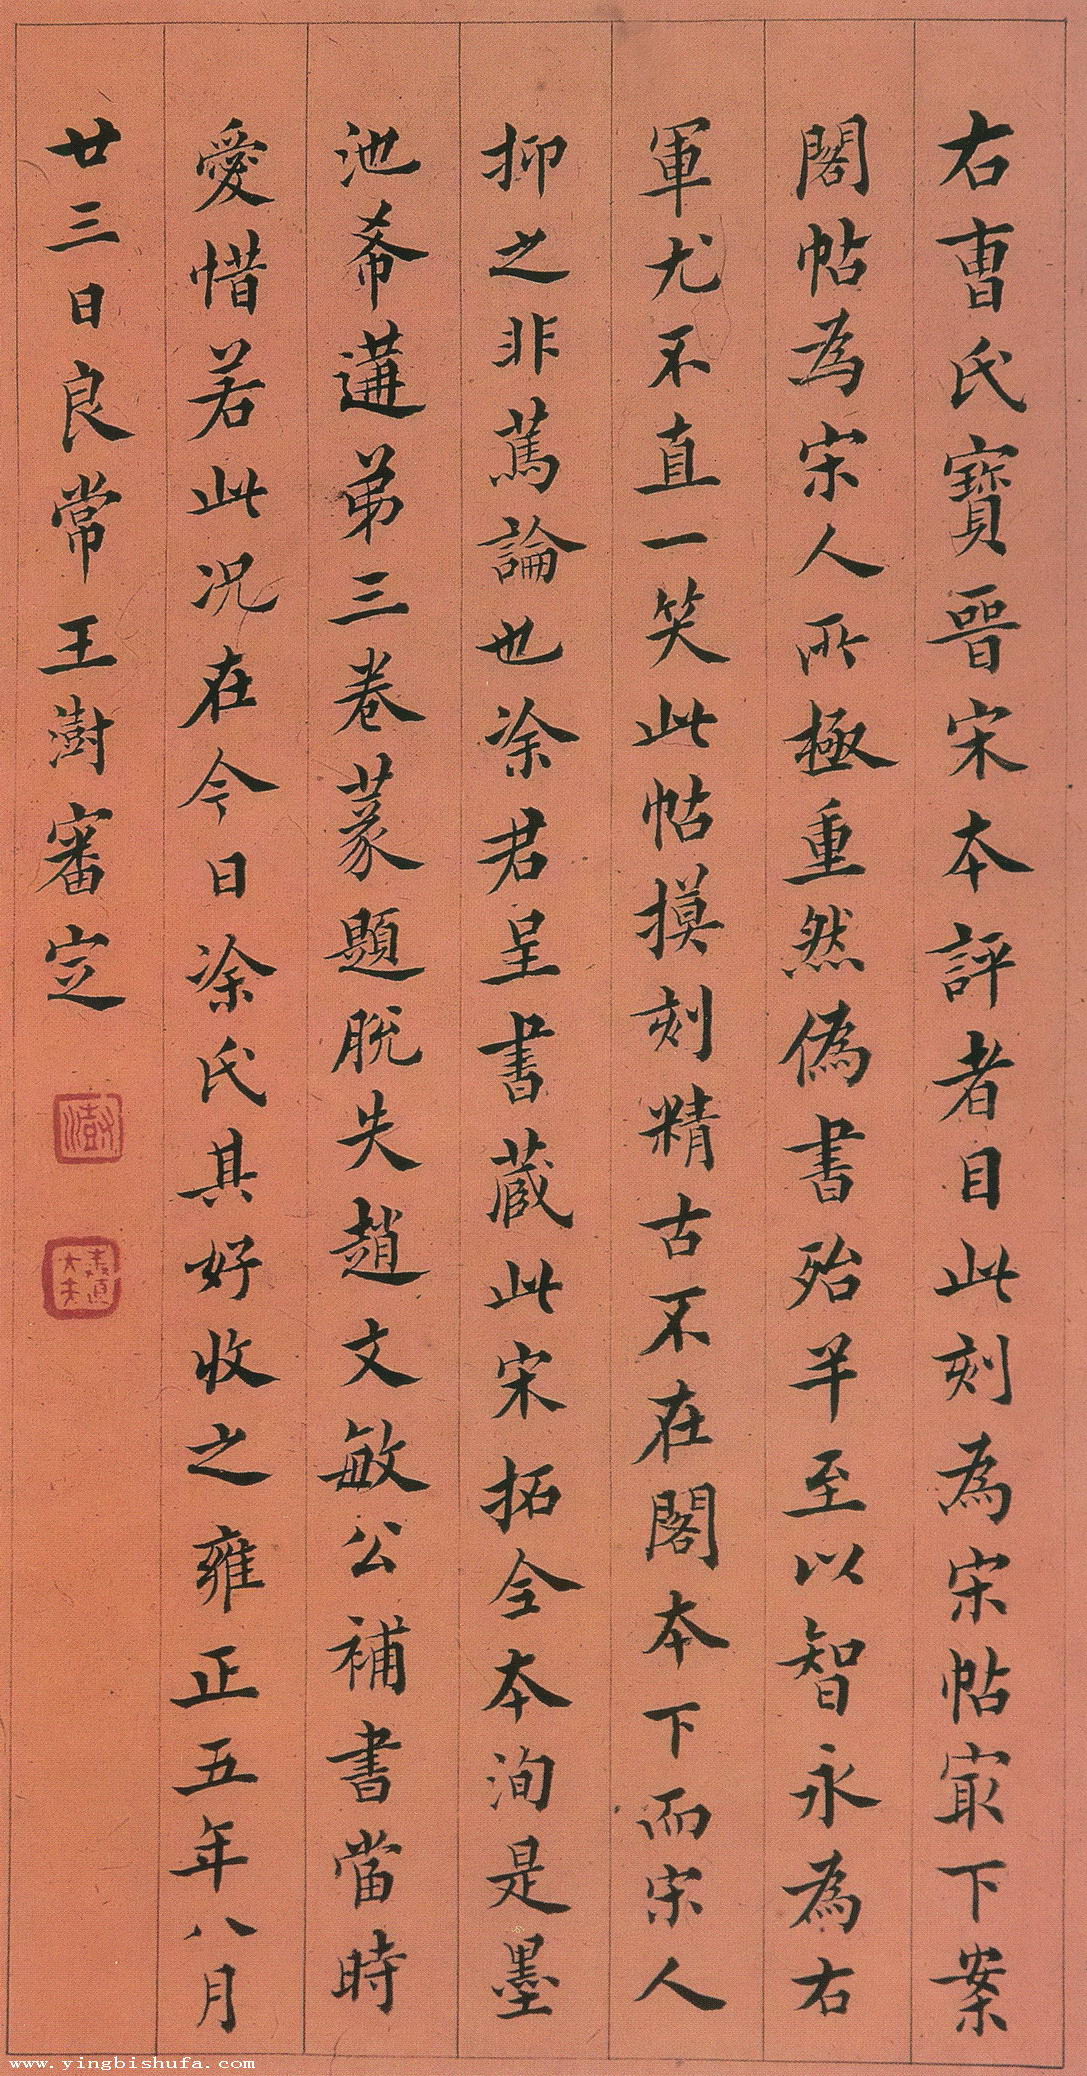 右曺氏寶晉宋本評者目此刻為宋帖冣下案
閣帖為宋人所極重然偽書殆半至以智永為右
軍尤不直一笑此帖摸刻精古不在閣本下而宋人
抑之非篤論也涂君呈書藏此宋拓全本洵是墨
池希遘弟三卷篆題脫失趙文敏公補書當時
愛惜若此况在今日涂氏其好收之雍正五年八月
廿三日良常王澍審定
澍
www.yingbishufa.com